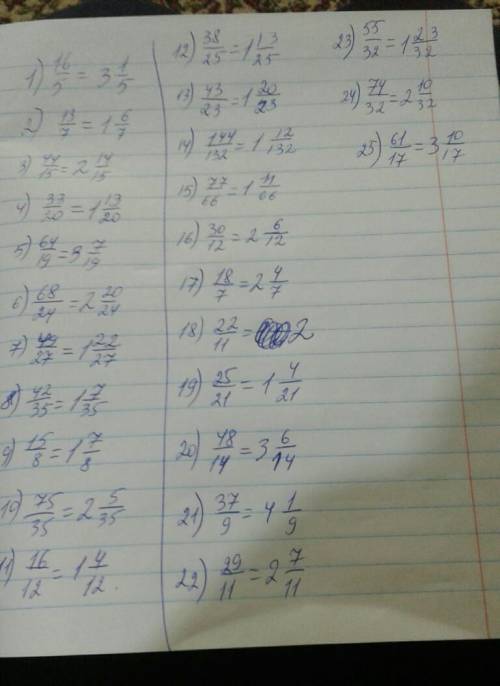 1) 16/5 = 3 1/5
2) 13/7 = 1 6/7
3) 44/15 = 2 14/15
4) 33/20 = 1 13/20
5) 64/19 = 3 7/19
6) 68/24 = 2 20/24
7) 49/27 = 1 22/27
8) 42/35 = 1 7/35
9) 15/8 = 1 7/8
10) 75/35 = 2 5/35
11) 16/12 = 1 4/12.
12) 38/25 = 1 13/25
13) 43/23 = 1 20/23
14) 144/132 = 1 12/132
15) 77/66 = 1 11/66
16) 30/12 = 2 6/12
17) 18/7 = 2 4/7
18) 22/11 = 2
19) 25/21 = 1 4/21
20) 48/14 = 3 6/14
21) 37/9 = 4 1/9
22) 29/11 = 2 7/11
23) 55/32 = 1 23/32
24) 74/32 = 2 10/32
25) 61/17 = 3 10/17